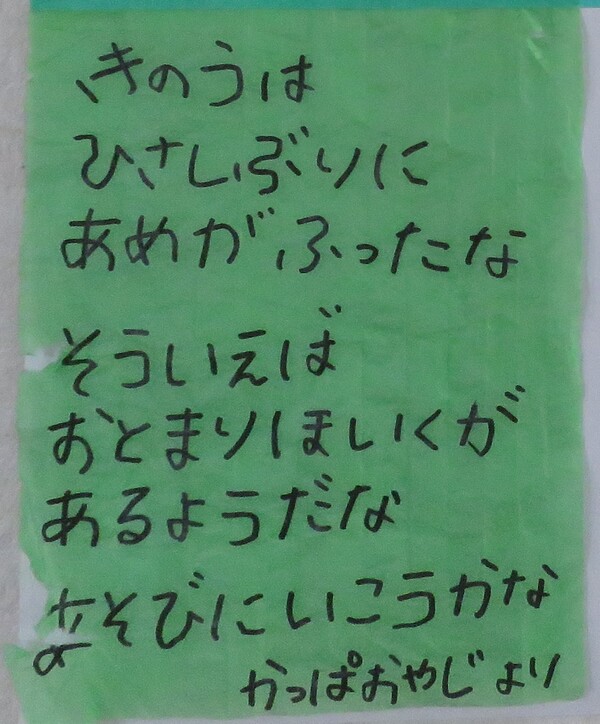 きのうは
ひさしぶりに
あめがふったな
そういえば
おとまりほいくが
あるようだな
あそびにいこうかな
かっぱおやじより